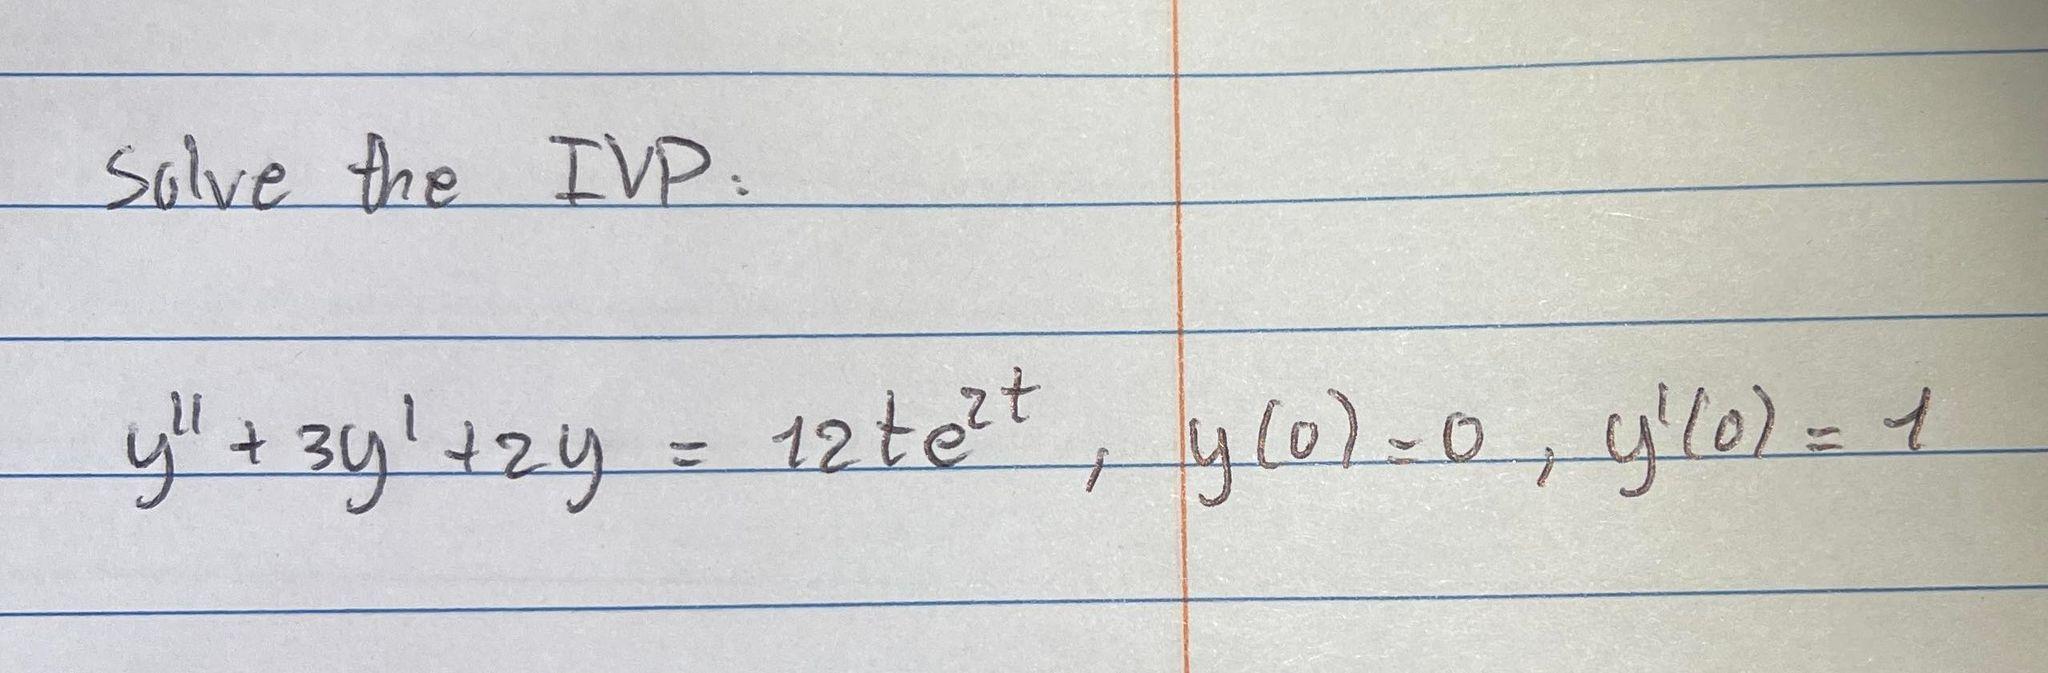 Solve the IVP:
y'' + 3y' + 2y = 12te^{2t}, y(0) = 0, y'(0) = 1